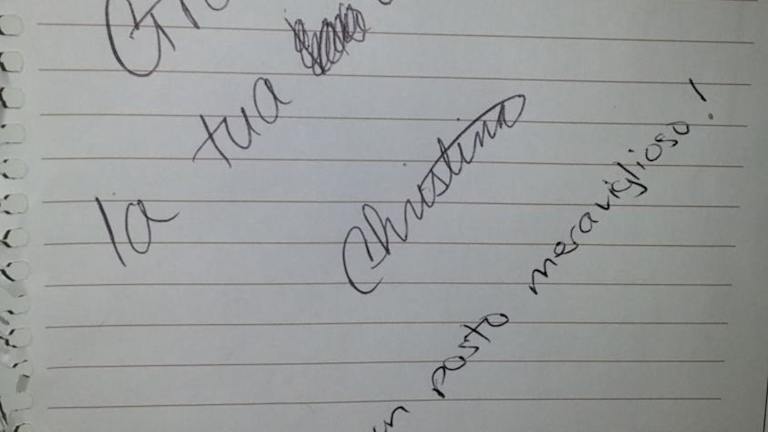 la tua
Christina
posto meraviglioso!